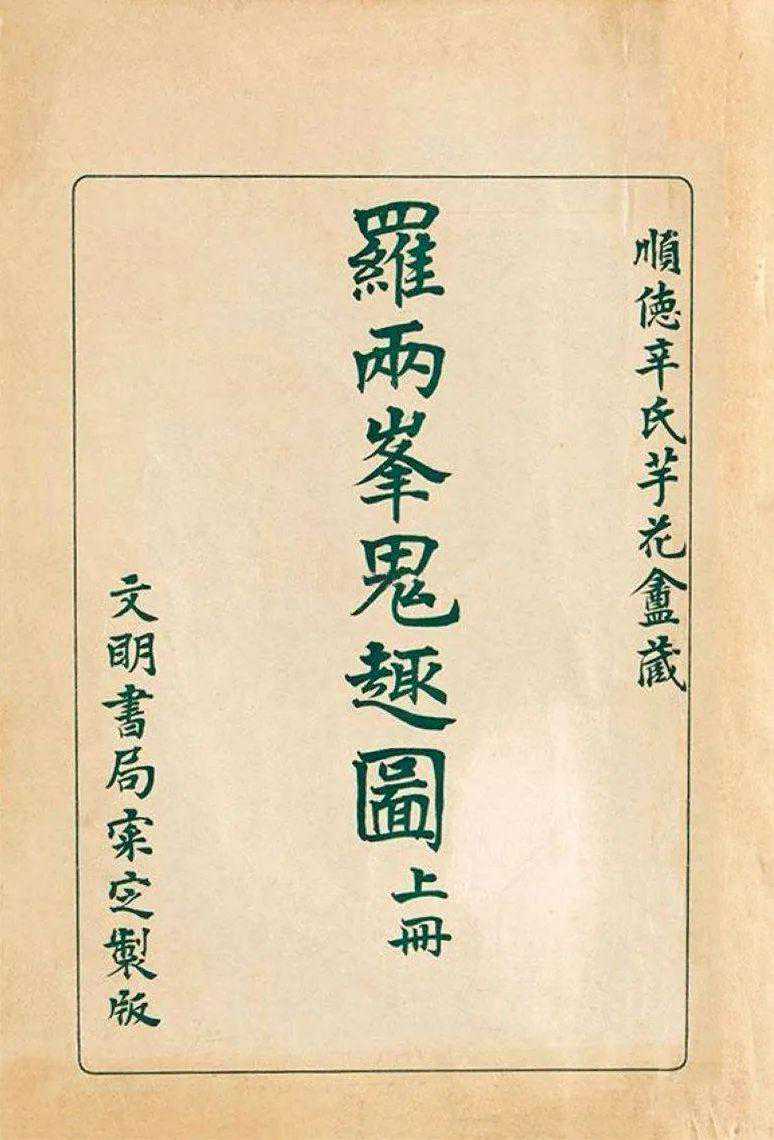 順德辛氏芋花盦藏
羅兩峯鬼趣圖上冊
文明書局寀定製版